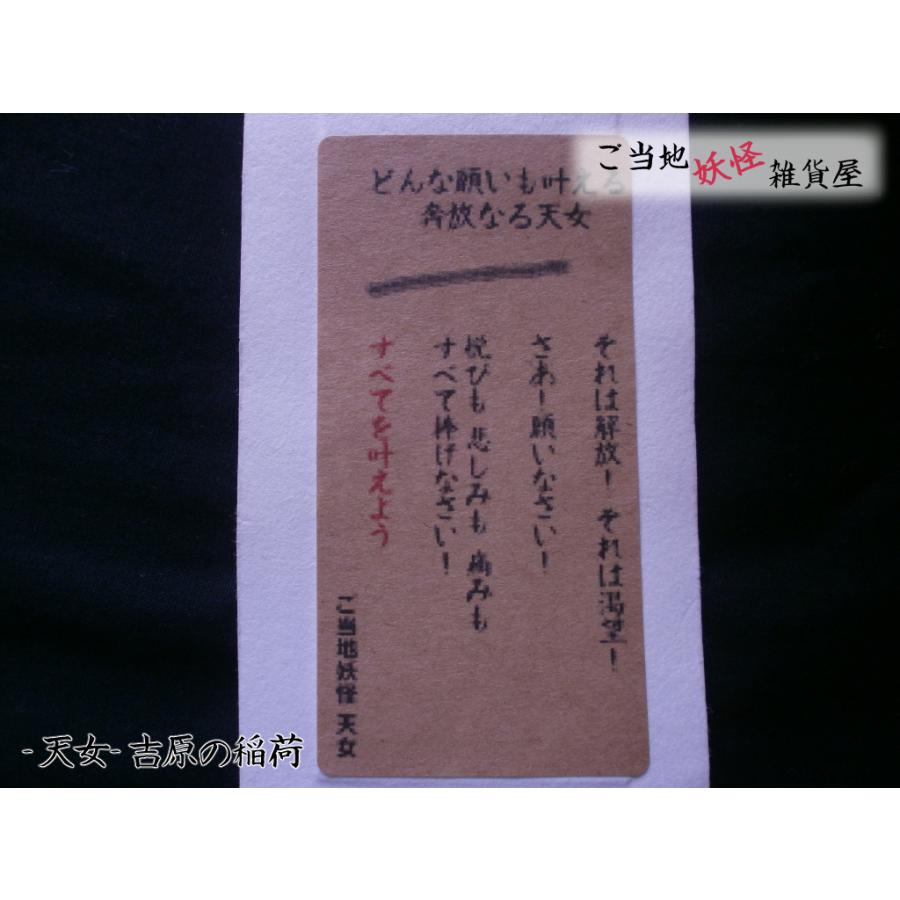 ご当地妖怪雑貨屋
どんな願いも叶える
奔放なる天女
それは解放！それは渇望！
さあ！願いなさい！
悦びも 悲しみも 痛みも
すべて捧げなさい！
すべてを叶えよう
ご当地妖怪 天女
-天女-吉原の稲荷